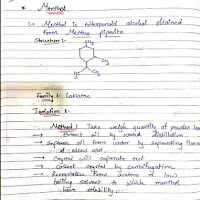 * Menthol
→ Menthol is triterpenoid alcohol obtained
from Mentha piperita
Structure :-
CH3
OH
H3C CH3
Family :- Labiatae
Isolation :-
Method : Take weigh quantity of powder leaves
→ Extract oil by steam distillation
→ Separate oil from water by separating funnel
→ allow cool,
→ Crystal will separate out
→ Collect crystal by centrifugation
→ Recrystallise from acetone or low
boiling solvent to which menthol
have solubility.